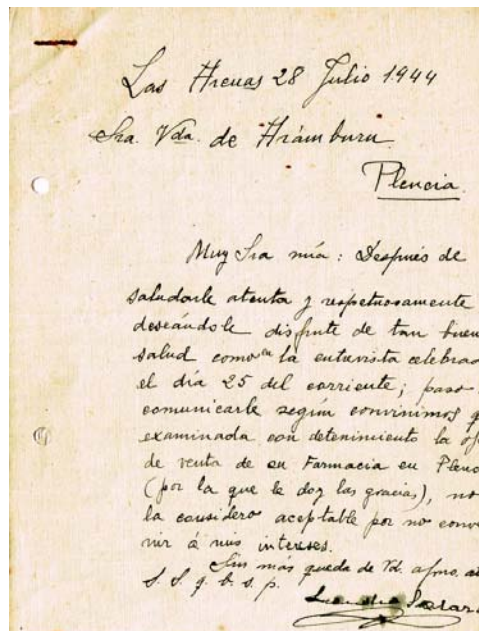 Las Arenas 28 Julio 1.944
Sra. Vda. de Arámburu.
Plencia.
Muy Sra mía: Después de
saludarle atenta y respetuosamente
deseándole disfrute de tan buen
salud como en la entrevista celebrad
el día 25 del corriente; paso
comunicarle según convinimos q
examinada con detenimiento la of
de venta de su Farmacia en Plenc
(por la que le doy las gracias), no
la considero aceptable por no conve
nir á mis intereses.
Sin más queda de Vd. afmo. at
S. S. q. b. s. p.